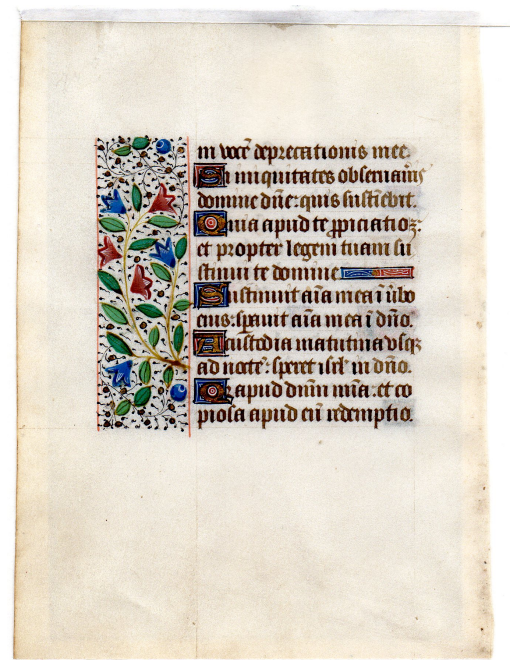 in vocē deprecationis mee.
Si iniquitates obseruaueris
domine dn̄e: quis sustinebit.
Quia apud te ꝓpiciatio ē:
et propter legem tuam su
stinui te domine
Sustinuit aīa mea ī ūbo
eius: sꝑauit aīa mea ī dn̄o.
A custodia matutina vsqꝫ
ad noctē: speret isrl̄ in dn̄o.
Q̄ apud dn̄m mīa: et co
piosa apud eū redemptio.